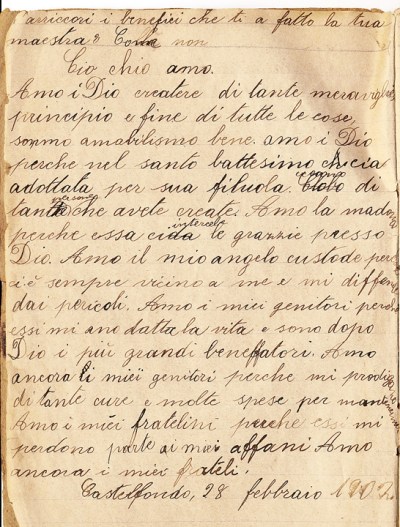 arriccori i benefici che ti a fatto la tua
maestra? Come non
Cio chio amo.
Amo i Dio createre di tante meraviglie
principio e fine di tutte le cose,
sommo amabilismo bene. amo i Dio
perche nel santo battesimo chicia
adottata per sua filuola. di
tante che avete create. Amo la madona
perche essa cida intercede le grazzie presso
Dio. Amo il mio angelo custode per
ci è sempre vicino a me e mi diffende
dai pericoli. Amo i miei genitori perche
essi mi ano datta la vita e sono dopo
Dio i più grandi beneffatori. Amo
ancora li miei genitori perche mi prodiga
di tante cure e molte spese per
Amo i miei fratelini perche essi mi
perdono parte ai miei affani Amo
ancora i miei frateli.
Castelfondo, 28 febbraio 1902